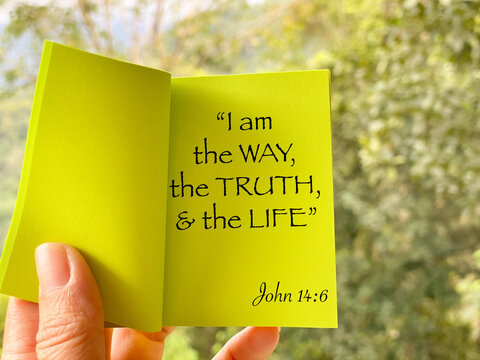 “I am
the WAY,
the TRUTH,
& the LIFE”
John 14:6